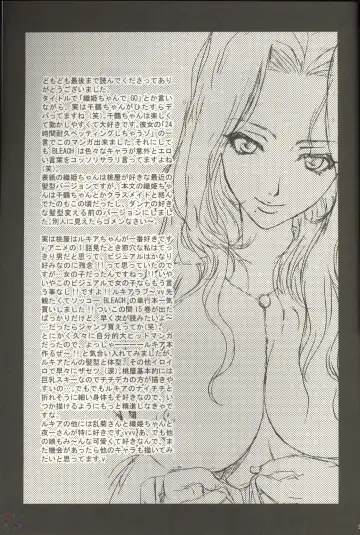 どもども最後まで読んでくださってあり
がとうございました。
タイトルで「織姫ちゃんでGO」とか言い
ながら、実は千鶴ちゃんがひたすらデ
バってますね(笑)。千鶴ちゃんは楽し
くて動かしやすくて大好きです。彼女の「24
時間耐久ペッティングしちゃうゾ」の一
言でこのマンガ出来ました。それにして
も、BLEACHは色々なキャラが意外とエロ
い言葉をコッソリサラリ言ってますよね
(笑)。
表紙の織姫ちゃんは桃屋が好きな最近の
髪型バージョンですが、本文の織姫ちゃん
は千鶴ちゃんとかクラスメイトと絡ん
でたのもこの頃だったし、ダンナの好き
な髪型変える前のバージョンにしまし
た。別人に見えたらゴメンなさい〜。

実は桃屋はルキアちゃんが一番好きです
vアニメの1話見たとき節穴な私はてっ
きり男だと思って、ビジュアルはかなり
好みなのに残念!!って思っていたので
すが…女の子だったんですねっ!!いや
いやこのビジュアルで女の子ならもう言
う事なし!!ですよ!!ルキアラブ〜vv先
観たくてソッコーBLEACHの単行本一気
買いしました!!ついこの間15巻が出た
ばっかりだけど、早く次が読みたいよ〜
〜だったらジャンプ買えってか(笑)。
とにかく久々に自分的大ヒットマンガ
だったので、よっしゃーーールキア本
作るぜ〜!!と気合い入れてみましたが、
ルキアたんの髪型と体型、その他イロイ
ロで早々にザセツ。(涙)。桃屋基本的には
巨乳スキーなのでチチデカの方が描きや
すいの…。でもでもルキアのナイチチと
折れそうに細い身体も好きなので、い
つか描けるようにもっと精進しなきゃで
すな。
ルキアの他には乱菊さんと織姫ちゃんと
夜一さんが特に好きですvvvあ、でも他
の娘もみ〜んな可愛くて好きなんで、ま
た機会があったら他のキャラも描いてみ
たいと思ってますv